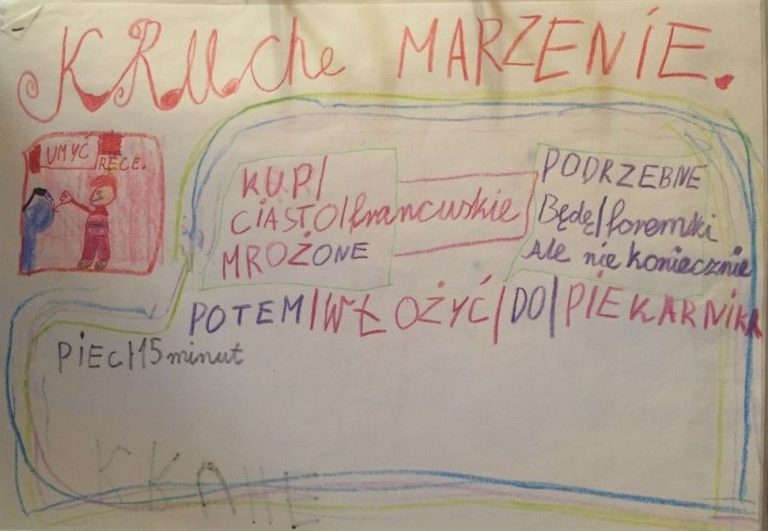 KRUChe MARZENIE.
UMYĆ RĘCE.
KUP/
CIASTO/francuskie
MROŻONE
PODRZEBNE
Będę/foremki
Ale nie koniecznie
POTEM/WŁOŻYĆ/DO/PIEKARNIKA
PIEC/15 minut